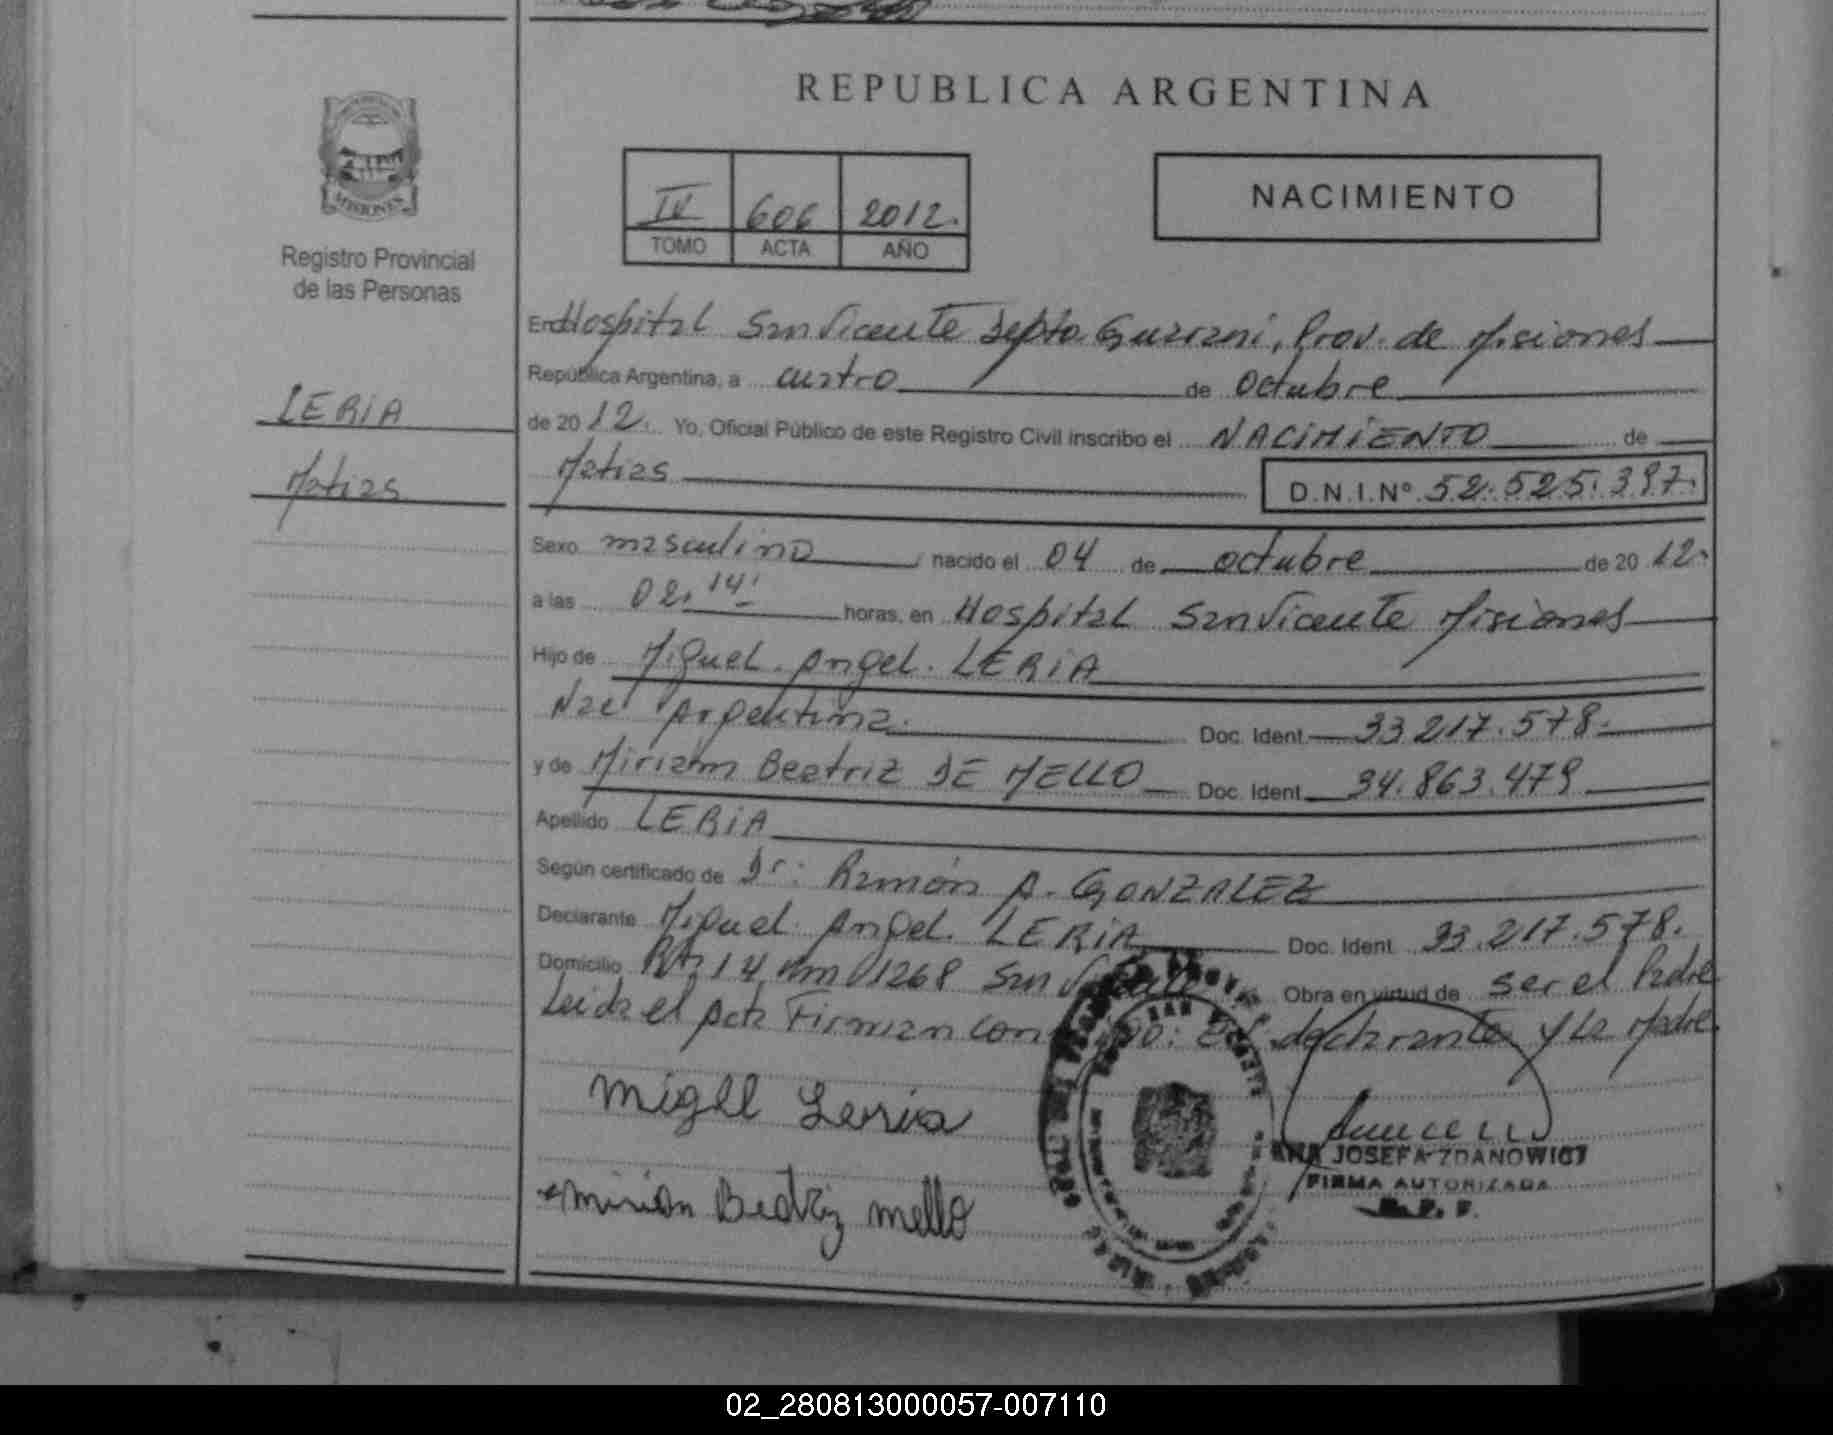 REPUBLICA ARGENTINA
MISIONES
Registro Provincial
de las Personas
IV 606 2012.
TOMO ACTA AÑO
NACIMIENTO
LERIA
Matias
En Hospital San Vicente Depto Guarani, Prov. de Misiones
República Argentina, a cuatro de octubre
de 2012. Yo, Oficial Público de este Registro Civil inscribo el NACIMIENTO de
Matias D.N.I.Nº 52.525.397.
Sexo masculino nacido el 04 de octubre de 2012.
a las 02.14' horas, en Hospital San Vicente Misiones
Hijo de Miguel Angel LERIA
Nac Argentina. Doc. Ident. 33 217.578.
y de Miriam Beatriz DE MELLO Doc. Ident. 34.863.479
Apellido LERIA
Según certificado de Dr: Ramón A. GONZALEZ
Declarante Miguel Angel LERIA Doc. Ident. 33.217.578.
Domicilio Rta 14 km 1268 San Vicente Obra en virtud de ser el Padre
Leida el acta Firman El declarante y la Madre.
Migell Leria
Mirian Beatriz mello
ANA JOSEFA ZDANOWICZ
FIRMA AUTORIZADA
R. P. P.
02_280813000057-007110